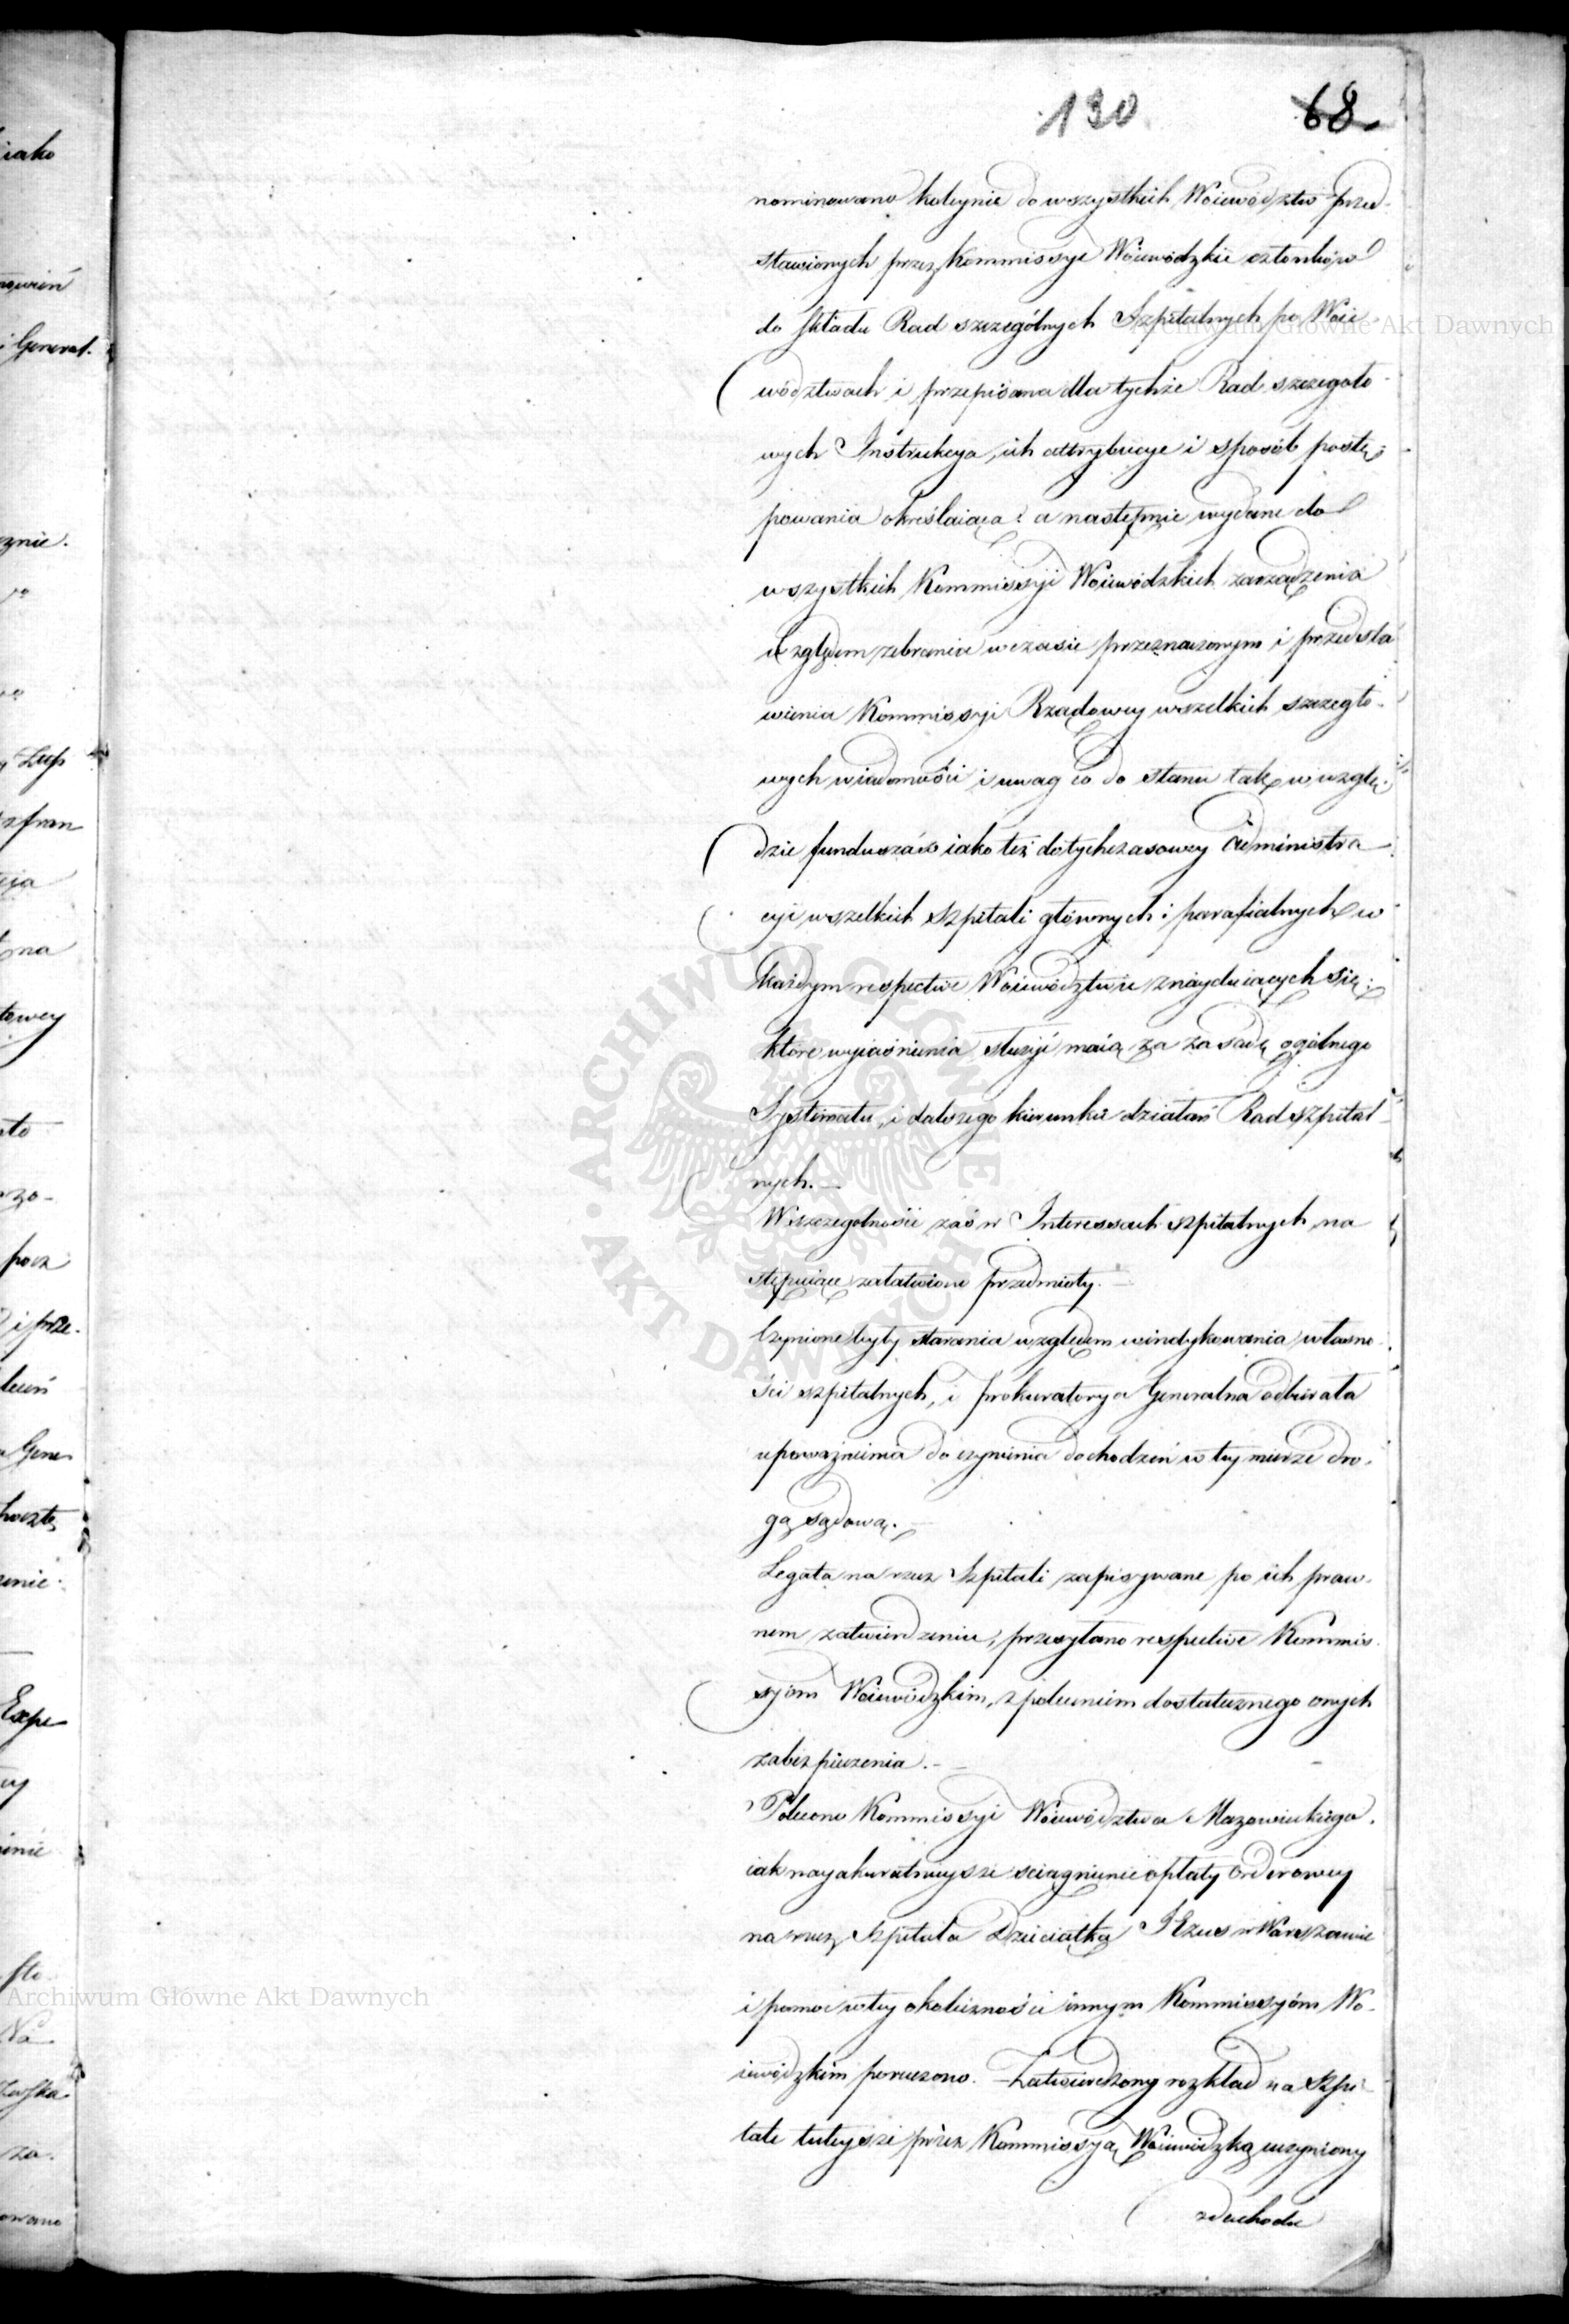 130 68.
nominowano koleynie do wszystkich Woiewództw przed-
stawionych przez Kommissye Woiewódzkie członków
do składu Rad szczególnych Szpitalnych po Woie-
wództwach i przepisana dla tychże Rad szczegóło-
wych Instrukcya, ich attrybucye i sposób postę-
powania określaiąca: a następnie wydane do
wszystkich Kommissyi Woiewódzkich zarządzenia
względem zebrania w czasie przeznaczonym i przedsta-
wienia Kommissyi Rządowey wszelkich szczegóło-
wych wiadomości i uwag co do stanu tak w wzglę-
dzie funduszów iako też dotychczasowey administra-
cyi wszelkich szpitali głównych i parafialnych w
każdym respective Woiewództwie znayduiących się;
które wyiaśnienia służyć maią za zasadę ogólnego
Systematu, i dalszego kierunku działań Rad szpital-
nych.—
W szczególności zaś w Interessach szpitalnych na-
stępuiące załatwiono przedmioty.—
Czynione były starania względem windykowania własno-
ści szpitalnych, i Prokuratorya Generalna odbierała
upoważnienia do czynienia dochodzeń w tey mierze dro-
gą sądową.—
Legata na rzecz Szpitali zapisywane po ich praw-
nem zatwierdzeniu, przesyłano respective Kommis-
syom Woiewódzkim, z poleceniem dostatecznego onych
zabezpieczenia.—
Polecono Kommissyi Woiewództwa Mazowieckiego,
iak nayakuratnieysze ściągnienie opłaty orderowey
na rzecz Szpitala Dzieciątka Jezus w Warszawie
i pomoc w tey okoliczności innym Kommissyóm Wo-
iewódzkim poruczono. Zatwierdzony rozkład na Szpi-
tale tuteysze przez Kommissyą Woiewódzką uczyniony
z dochodu
iako
i General.
Archiwum Główne Akt Dawnych
Archiwum Główne Akt Dawnych
ARCHIWUM GŁÓWNE
· AKT DAWNYCH ·